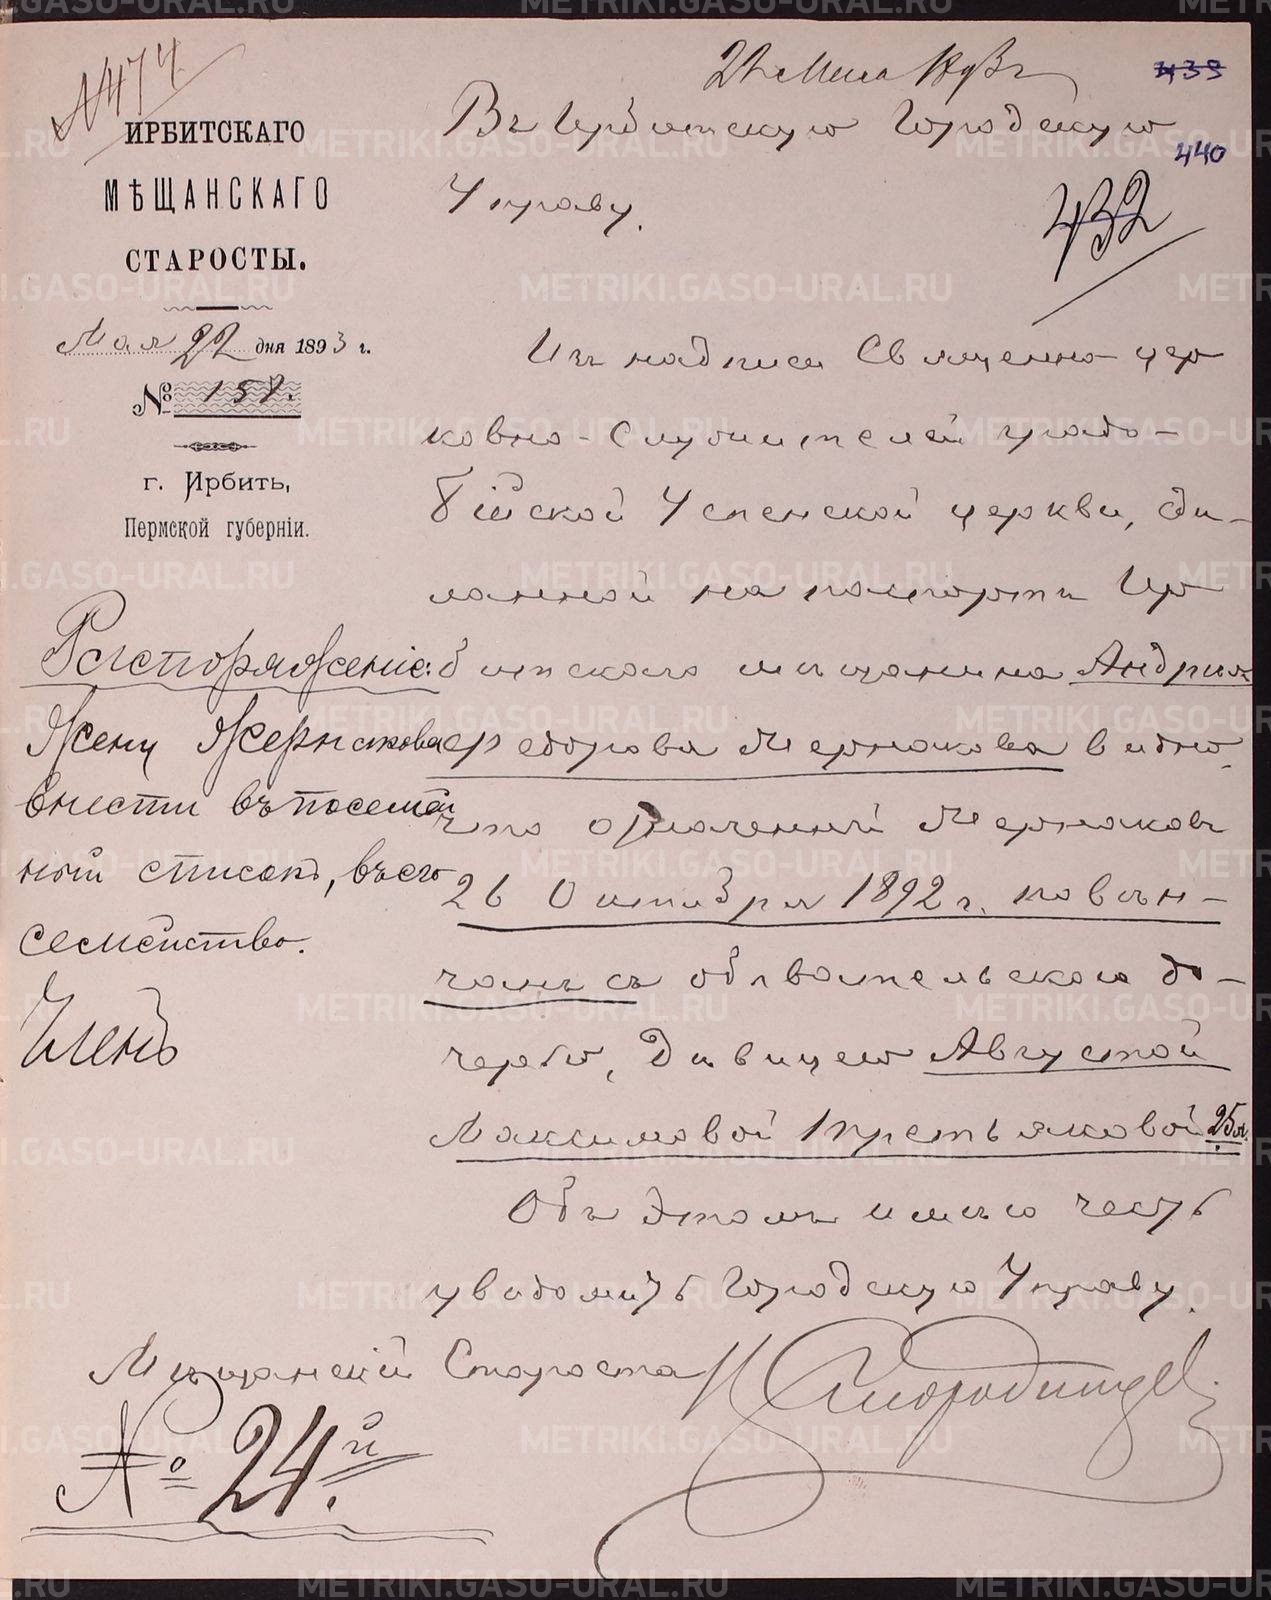 № 474.
22 Мая 1893 г.
439
440
432
ИРБИТСКАГО
МѢЩАНСКАГО
СТАРОСТЫ.
Мая 22 дня 1893 г.
№ 157.
г. Ирбить,
Пермской губерніи.
Въ Ирбитскую Городскую
Управу.
Изъ надписи Священно-цер
ковно-служителей градо-
бійской Успенской церкви, сдѣ-
ланной на паспортѣ Ир
битскаго мѣщанина Андрея
Федорова Жернакова видно,
что означенный Жернаковъ
26 Октября 1892 г. повѣн-
чанъ съ обывательскою до-
черью, дѣвицею Августой
Максимовой Третьяковой 25 л.
Объ этомъ имѣю честь
увѣдомить Городскую Управу.
Мѣщанскій Староста
Распоряженіе:
Жену Жернакова
внести въ посемей
ный списокъ, въ его
семейство.
Членъ
№ 24.й
METRIKI.GASO-URAL.RU